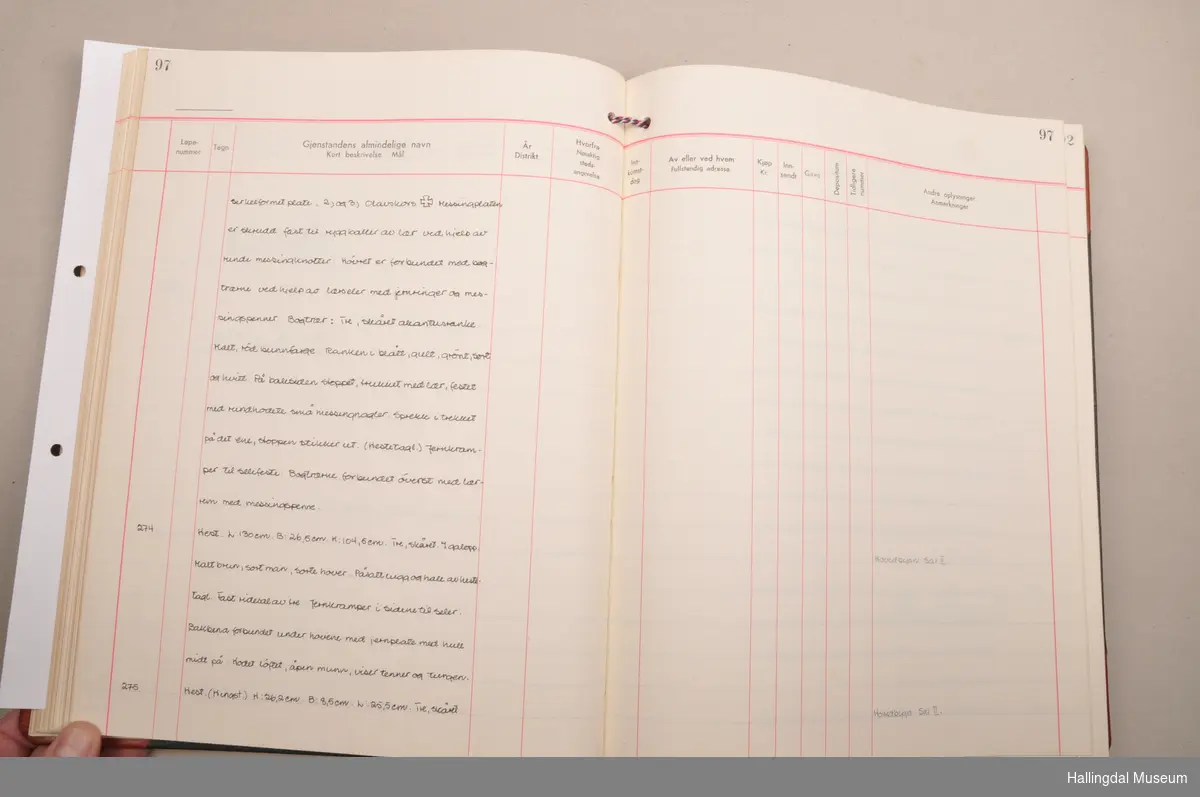 97
Løpe-
nummer
Tegn
Gjenstandens almindelige navn
Kort beskrivelse Mål
År
Distrikt
Hvorfra
Nøiaktig
steds-
angivelse
sirkelformet plate. 2) og 3) Olavskors Messingplaten
er skrudd fast til ryggballer av lær ved hjelp av
runde messingknotter. Høvret er forbundet med bog-
trærne ved hjelp av lærseler med jernringer og mes-
singspenner. Bogtrær: Tre, skåret akantusranke.
Malt, röd bunnfarge. Ranken i blått, gult, grönt, sort
og hvitt. På baksiden stoppet, trukket med lær, festet
med rundhodete små messingnagler. Sprekk i trekket
på det ene, stoppen stikker ut. (Hestetagl.) Jernkram-
per til selefeste. Bogtrærne forbundet överst med lær-
rem med messingspenne.
274. Hest. L: 130cm. B: 26,5cm. H: 104,5cm. Tre, skåret. I galopp.
Malt brun, sort man, sorte hover. Påsatt lugg og hale av heste-
tagl. Fast ridesal av tre. Jernkramper i sidene til seler.
Bakbena forbundet under hovene med jernplate med hull
midt på. Hodet löftet, åpen munn, viser tenner og tungen.
275. Hest. (Hingst.) H: 26,2cm. B: 8,5cm. L: 25,5cm. Tre, skåret
97
92
Inn-
komst-
dag
Av eller ved hvem
Fullstendig adresse
Kjøp
Kr.
Inn-
sendt
Gave
Depositum
Tidligere
nummer
Andre oplysninger
Anmerkninger
Hovudbygn. Sal II.
Hovudbygn. Sal II.
Hallingdal Museum